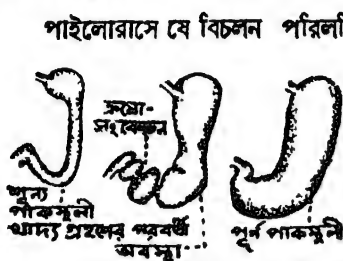 পাইলোরাসে যে বিচলন পরিলি
ক্রমো-
সংবেষ্টন
শূন্য
পাকস্থলী
খাদ্য গ্রহণের পরবর্তী
অবস্থা
পূর্ন পাকস্থলী